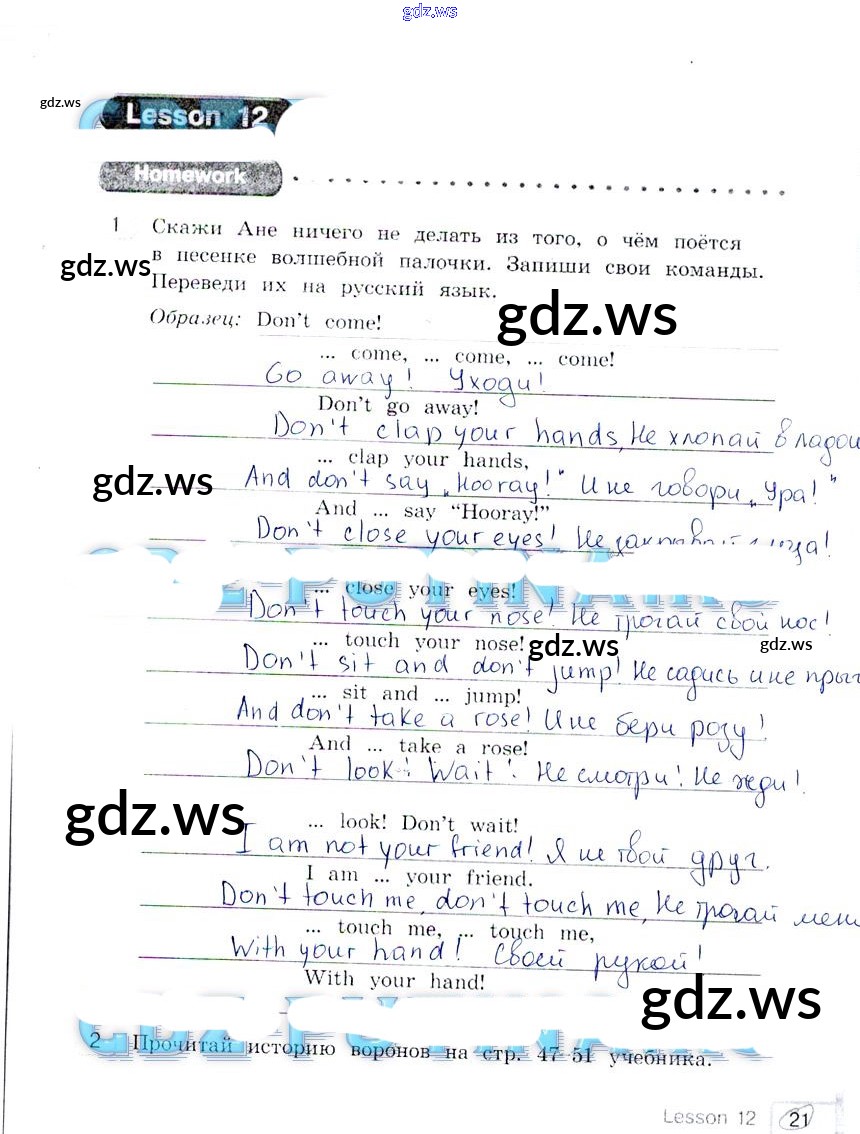 gdz.ws
gdz.ws
Lesson 12
Homework
1 Скажи Ане ничего не делать из того, о чём поётся
в песенке волшебной палочки. Запиши свои команды.
gdz.ws
Переведи их на русский язык.
Образец: Don't come!
gdz.ws
... come, ... come, ... come!
Go away! Уходи!
Don't go away!
Don't clap your hands, Не хлопай в ладош
... clap your hands,
gdz.ws
And don't say „Hooray!" И не говори „Ура!"
gdz.ws
And ... say "Hooray!"
Don't close your eyes! Не
... close your eyes!
Don't touch your nose! Не трогай свой нос!
... touch your nose!
gdz.ws
gdz.ws
Don't sit and don't jump! Не садись и не прыг
... sit and ... jump!
And don't take a rose! И не бери розу!
And ... take a rose!
Don't look! Wait! Не смотри! Не жди!
gdz.ws
... look! Don't wait!
I am not your friend! Я не твой друг.
I am ... your friend.
Don't touch me, don't touch me, Не трогай мен
... touch me, ... touch me,
With your hand! Своей рукой!
With your hand!
gdz.ws
2 Прочитай историю воронов на стр. 47-51 учебника.
Lesson 12 21